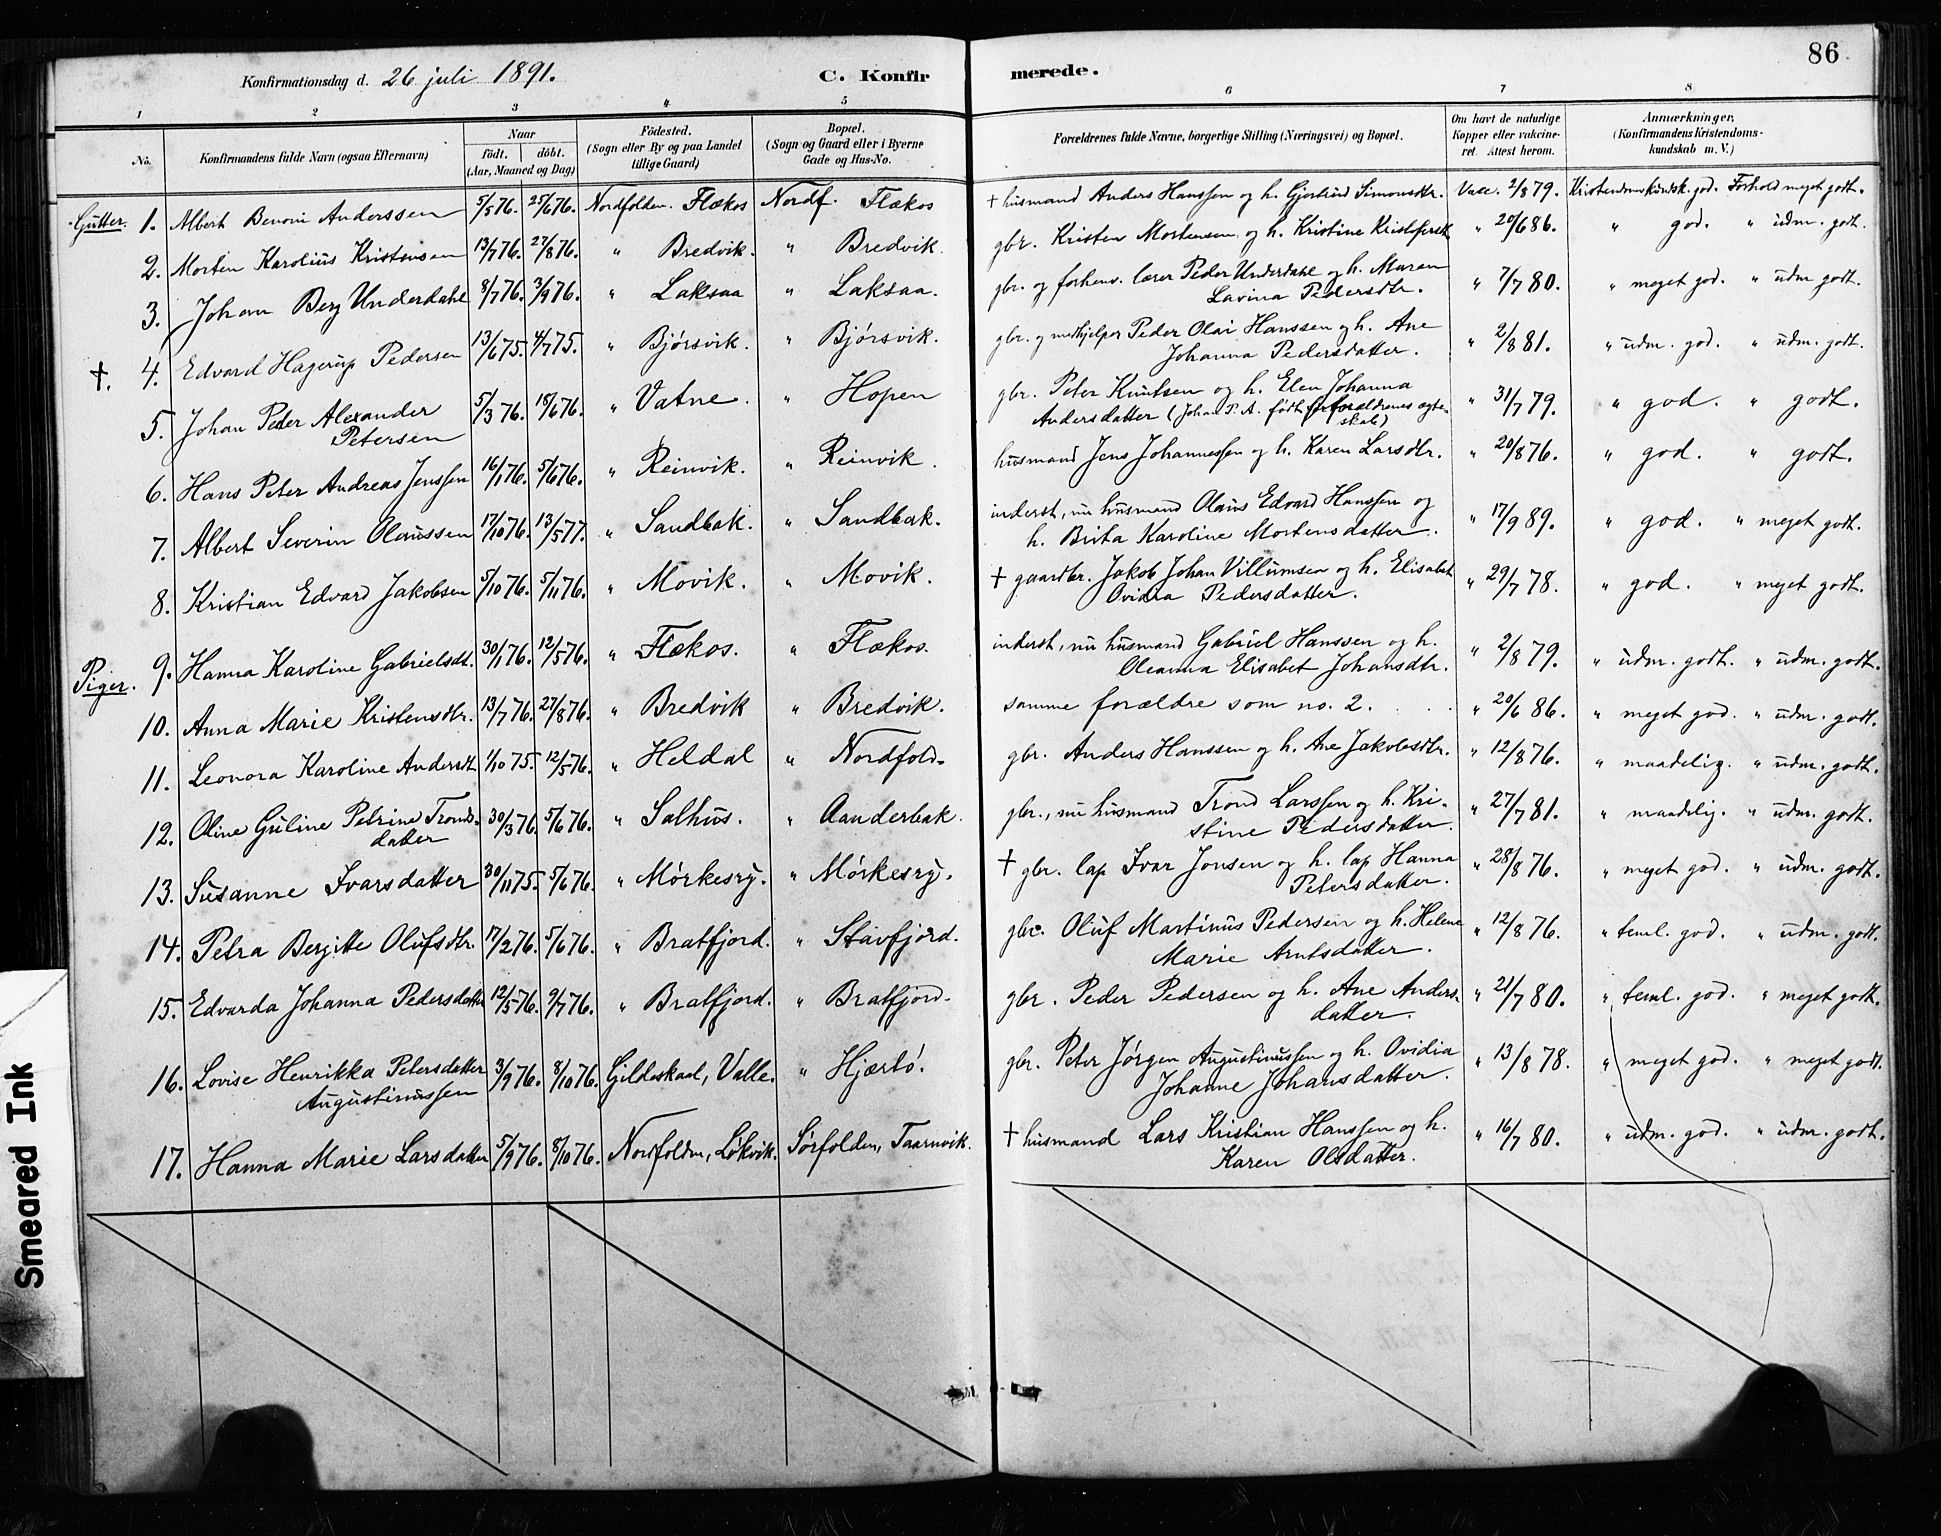 86
Konfirmationsdag d. 26 juli 1891.
C. Konfir merede.
1 2 3 4 5 6 7 8
No. Konfirmandens fulde Navn (ogsaa Efternavn) Naar født. døbt. (Aar, Maaned og Dag) Fødested. (Sogn eller By og paa Landet tillige Gaard) Bopæl. (Sogn og Gaard eller i Byerne Gade og Hus-No. Forældrenes fulde Navne, borgerlige Stilling (Næringsvei) og Bopæl. Om havt de naturlige Kopper eller vakcineret. Attest herom. Anmærkninger, (Konfirmandens Kristendomskundskab m. V.)
Gutter. 1. Albert Benoni Anderssen 5/5 76. 25/6 76. Nordfolden. Flækos Nordf. Flækos + husmand Anders Hanssen og h. Gjertrud Simonsdtr. Vacc. 2/8 79. Kristendomskundsk. god. Forhold meget godt.
2. Morten Karolius Kristensen 13/7 76. 27/8 76. " Bredvik. " Bredvik. gbr. Kristen Mortensen og h. Kristine Kristofersd. " 20/6 86. " god. " udm. godt.
3. Johan Berg Underdahl 8/7 76. 3/9 76. " Laksaa " Laksaa. gbr. og forhenv. lærer Peder Underdahl og h. Maren
Lavina Pedersdtr. " 7/7 80. " meget god. " udm godt.
†. 4. Edvard Hagerup Pedersen 13/6 75. 4/7 75. " Bjørsvik. " Bjørsvik. gbr. og medhjelper Peder Olai Hanssen og h. Ane
Johanna Pedersdatter. " 2/8 81. " udm. god. " udm. godt.
5. Johan Peder Alexander
Petersen 5/3 76. 18/6 76. " Vatne. " Hopen gbr. Peter Knutsen og h. Elen Johanna
Andersdatter (Johan P. A. født før forældrenes ægte-
skab) " 31/7 79. " god. " godt.
6. Hans Peter Andreas Jenssen 16/1 76. 5/6 76. " Reinvik. " Reinvik. husmand Jens Johannessen og h. Karen Larsdtr. " 20/8 76. " god. " godt.
7. Albert Severin Olaussen 17/10 76. 13/5 77. " Sandbak. " Sandbak. inderst, nu husmand Olaus Edvard Hanssen og
h. Brita Karoline Mortensdatter. " 17/9 89. " god. " meget godt.
8. Kristian Edvard Jakobsen 5/10 76. 5/11 76. " Movik. " Movik. + gaardbr. Jakob Johan Villumsen og h. Elisabet
Ovidia Pedersdatter. " 29/7 78. " god. " meget godt.
Piger. 9. Hanna Karoline Gabrielsdt. 30/1 76. 12/5 76. " Flækos. " Flækos. inderst, nu husmand Gabriel Hanssen og h.
Oleanna Elisabet Johansdtr. " 2/8 79. " udm. godt. " udm. godt.
10. Anna Marie Kristensdtr. 13/7 76. 27/8 76. " Bredvik " Bredvik. samme forældre som no. 2. " 20/6 86. " meget god. " udm. godt.
11. Leonora Karoline Andersdt. 1/10 75. 12/5 76. " Heldal " Nordfold. gbr. Anders Hanssen og h. Ane Jakobsdtr. " 12/8 76. " maadelig. " udm. godt.
12. Oline Guline Petrine Tronds-
datter 30/3 76. 5/6 76. " Salhus. " Aanderbak. gbr., nu husmand Trond Larssen og h. Kri-
stine Pedersdatter. " 27/7 81. " maadelig. " udm. godt.
13. Susanne Ivarsdatter 30/11 75. 5/6 76. " Mørkesry. " Mørkesry. + gbr. lap Ivar Jonsen og h. lap Hanna
Petersdatter. " 28/8 76. " meget god. " udm. godt.
14. Petra Bergitte Olufsdtr. 17/2 76. 5/6 76. " Bratfjord. " Stavfjord. gbr. Oluf Martinus Pedersen og h. Helene
Marie Arntsdatter. " 12/8 76. " teml. god. " udm. godt.
15. Edvarda Johanna Pedersdatter 12/5 76. 9/7 76. " Bratfjord. " Bratfjord. gbr. Peder Pedersen og h. Ane Anders-
datter. " 21/7 80. " teml. god. " meget godt.
16. Lovise Henrikka Petersdatter
Augustinussen 3/9 76. 8/10 76. Gildeskaal, Valle. " Hjærtø. gbr. Peter Jørgen Augustinussen og h. Ovidia
Johanne Johansdatter. " 13/8 78. " meget god. " meget godt.
17. Hanna Marie Larsdatter 5/9 76. 8/10 76. Nordfolden, Løkvik. Sørfolden, Taarnvik. + husmand Lars Kristian Hanssen og h.
Karen Olsdatter. " 16/7 80. " udm. god. " udm. godt.
Smeared Ink